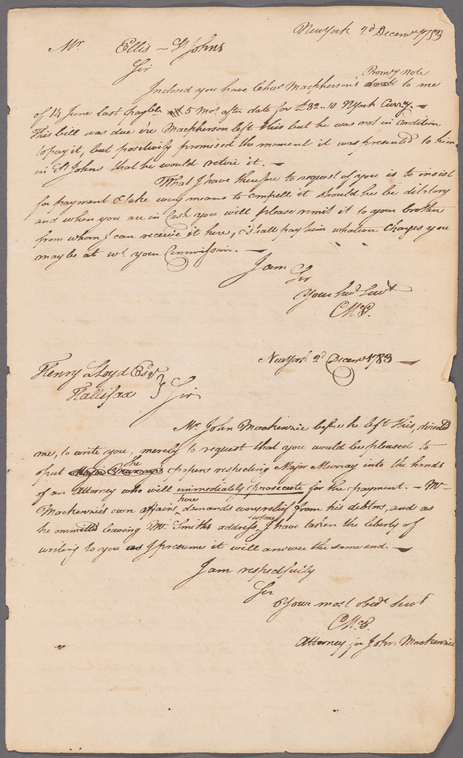 NewYork 2d Decemr 1783
Mr Ellis – St Johns
Sir
Inclosed you have Chas Macpherson's Promy note to me
of 14 June last payble 5 Mos after date for £32..10 NYork Curry.–
This bill was due 'ere Macpherson left this but he was not in condition
to pay it, but positively promised the moment it was presented to him
in St Johns that he would retire it. –
What I have therefore to request of you is to insist
for payment & take every means to compell it should he be dilatory
and when you are in Cash you will please remit it to your brother
from whom I can receive it here, & shall pay him whatever Charges you
may be at wt your Commission. –
I am
Sir
Your hue Servt
CMcE.
NewYork 2d Decemr 1783
Henry Lloyd Esqr
Hallifax
Sir
Mr John Mackenzie before he left this, desired
me, to write you, merely to request that you would be pleased to
put the papers respecting Major Murray into the hands
of an Attorney who will immediately prosecute for the payment. – Mr
Mackenzie's own affairs here demands every relief from his debtors, and as
he ommitted leaving Mr Smith's address, I have taken the liberty of
writing to you as I presume it will answer the same end. –
I am respectfully
Sir
Your most obedt Servt
CMcE.
Attorney for John Mackenzie